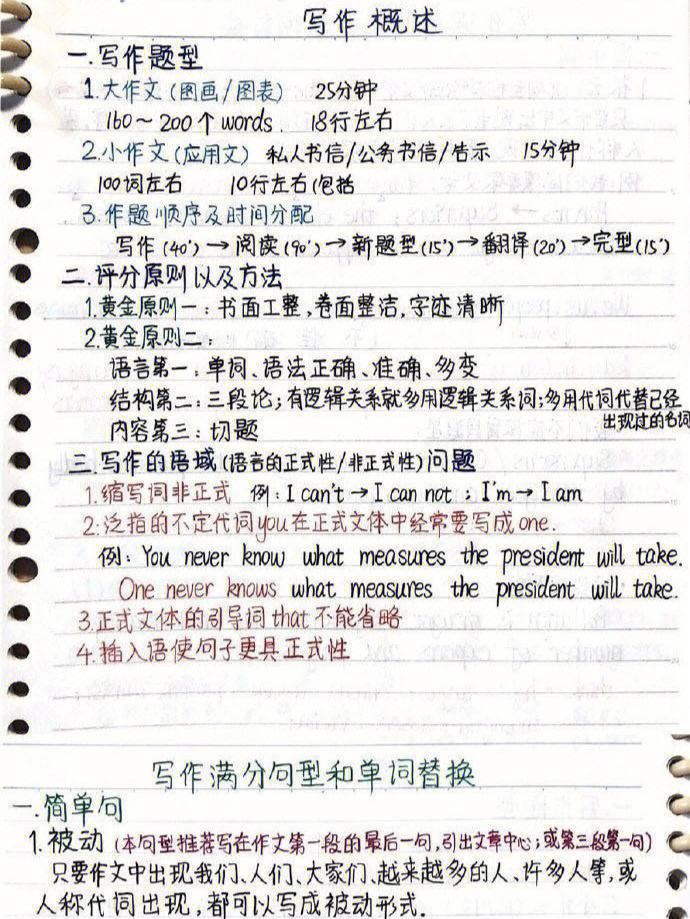 写作概述
一.写作题型
1.大作文(图画/图表) 25分钟
160～200个words. 18行左右
2.小作文(应用文) 私人书信/公务书信/告示 15分钟
100词左右 10行左右(包括
3.作题顺序及时间分配
写作(40')→阅读(90')→新题型(15')→翻译(20')→完型(15')
二.评分原则以及方法
1.黄金原则一:书面工整,卷面整洁,字迹清晰
2.黄金原则二:
语言第一:单词、语法正确、准确、多变
结构第二:三段论;有逻辑关系就多用逻辑关系词;多用代词代替已经
出现过的名词
内容第三:切题
三.写作的语域(语言的正式性/非正式性)问题
1.缩写词非正式 例:I can't→I can not ; I'm→I am
2.泛指的不定代词you在正式文体中经常要写成one.
例: You never know what measures the president will take.
One never knows what measures the president will take.
3.正式文体的引导词that不能省略
4.插入语使句子更具正式性
写作满分句型和单词替换
一.简单句
1.被动(本句型推荐写在作文第一段的最后一句,引出文章中心;或第三段第一句)
只要作文中出现我们、人们、大家们、越来越多的人、许多人等,或
人称代词出现,都可以写成被动形式.